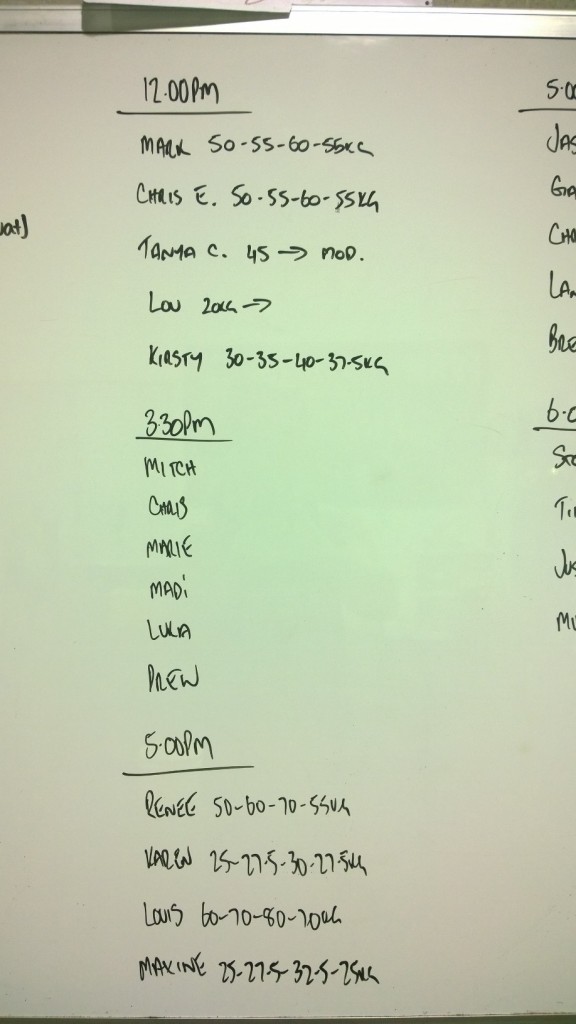 12.00PM
MARK 50-55-60-55KG
CHRIS E. 50-55-60-55KG
TANYA C. 45 → MOD.
LOU 20KG →
KIRSTY 30-35-40-37.5KG
3.30PM
MITCH
CHRIS
MARIE
MADi
LUKA
DREW
5.00PM
RENEE 50-60-70-55KG
KAREN 25-27.5-30-27.5KG
LOUIS 60-70-80-70KG
MAXINE 25-27.5-32.5-25KG